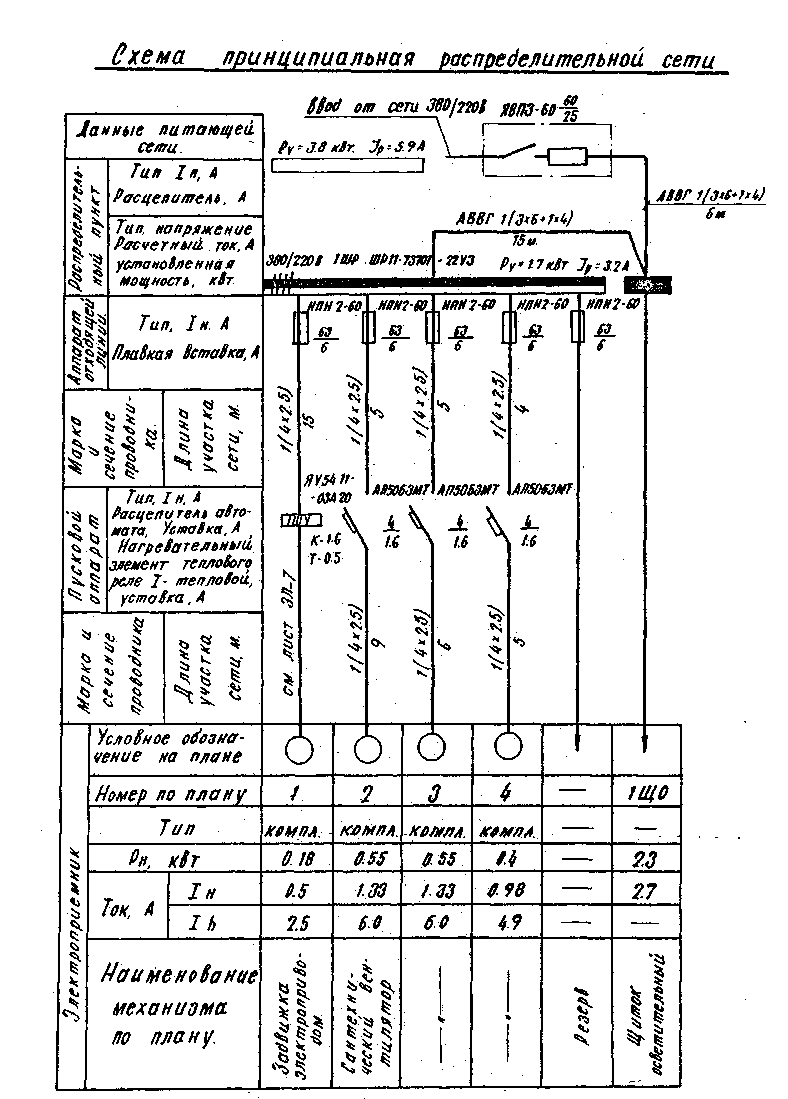 Схема принципиальная распределительной сети
Ввод от сети 380/220В
ЯВПЗ-60 60/25
Данные питающей
сети.
Ру=3.8 кВт. Iр=5.9А
Распределитель-
ный пункт
Тип Iн, А
Расцепитель, А
АВВГ 1(3×6+1×4)
6м
Тип, напряжение
Расчетный ток, А
установленная
мощность, кВт.
АВВГ 1(3×6+1×4)
15м.
380/220В 1ШР ШР11-73701-22У3 Ру=1.7 кВт Iр=3.2А
Аппарат
отходящей
линии.
Тип, Iн. А
Плавкая вставка, А
НПН2-60 НПН2-60 НПН2-60 НПН2-60 НПН2-60
63/6 63/6 63/6 63/6 63/6
Марка
и
сечение
проводни-
ка.
Длина
участка
сети, м.
1(4×2.5) 15
1(4×2.5) 5
1(4×2.5) 5
1(4×2.5) 4
Пусковой
аппарат
Тип, Iн, А
Расцепитель авто-
мата, Уставка, А
Нагревательный
элемент теплового
реле I- тепловой,
уставка, А
ЯУ5411-
-03А20
К-1.6
Т-0.5
АП50БЗМТ АП50БЗМТ АП50БЗМТ
4/1.6 4/1.6 4/1.6
Марка и
сечение
проводника
Длина
участка
сети, м.
см. лист ЭЛ-7
1(4×2.5) 9
1(4×2.5) 6
1(4×2.5) 5
Электроприемник
Условное обозна-
чение на плане
Номер по плану 1 2 3 4 — 1ЩО
Тип компл. компл. компл. компл. — —
Рн, кВт 0.18 0.55 0.55 0.4 — 2.3
Ток, А
Iн 0.5 1.33 1.33 0.98 — 2.7
Iп 2.5 6.0 6.0 4.9 — —
Наименование
механизма
по плану.
Задвижка с
электроприво-
дом.
Сантехни-
ческий вен-
тилятор
—"—
—"—
Резерв
Щиток
осветительный